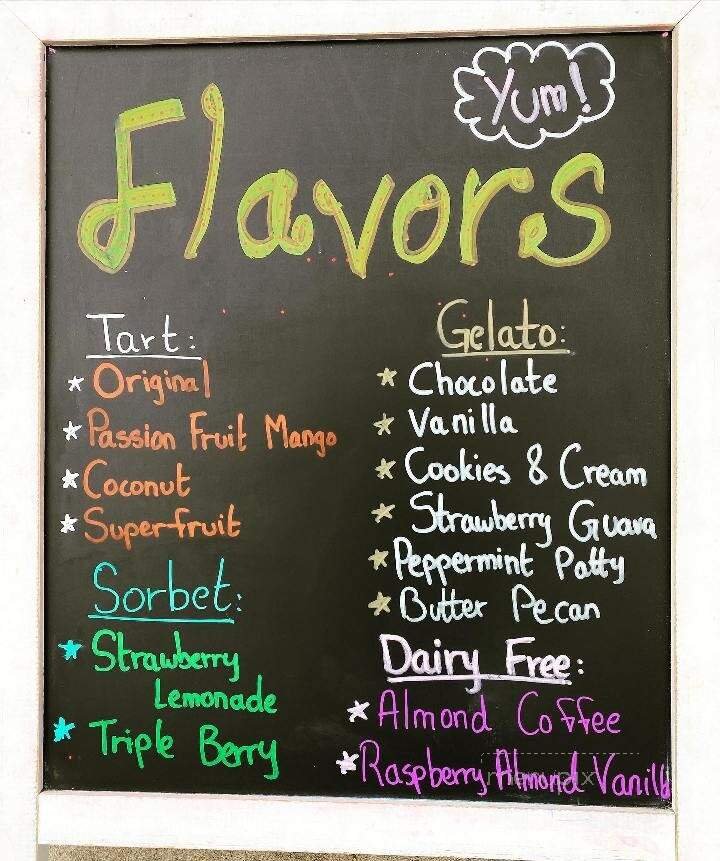 Yum!
Flavors
Tart:
* Original
* Passion Fruit Mango
* Coconut
* Superfruit
Sorbet:
* Strawberry
Lemonade
* Triple Berry
Gelato:
* Chocolate
* Vanilla
* Cookies & Cream
* Strawberry Guava
* Peppermint Patty
* Butter Pecan
Dairy Free:
* Almond Coffee
* Raspberry Almond Vanilla